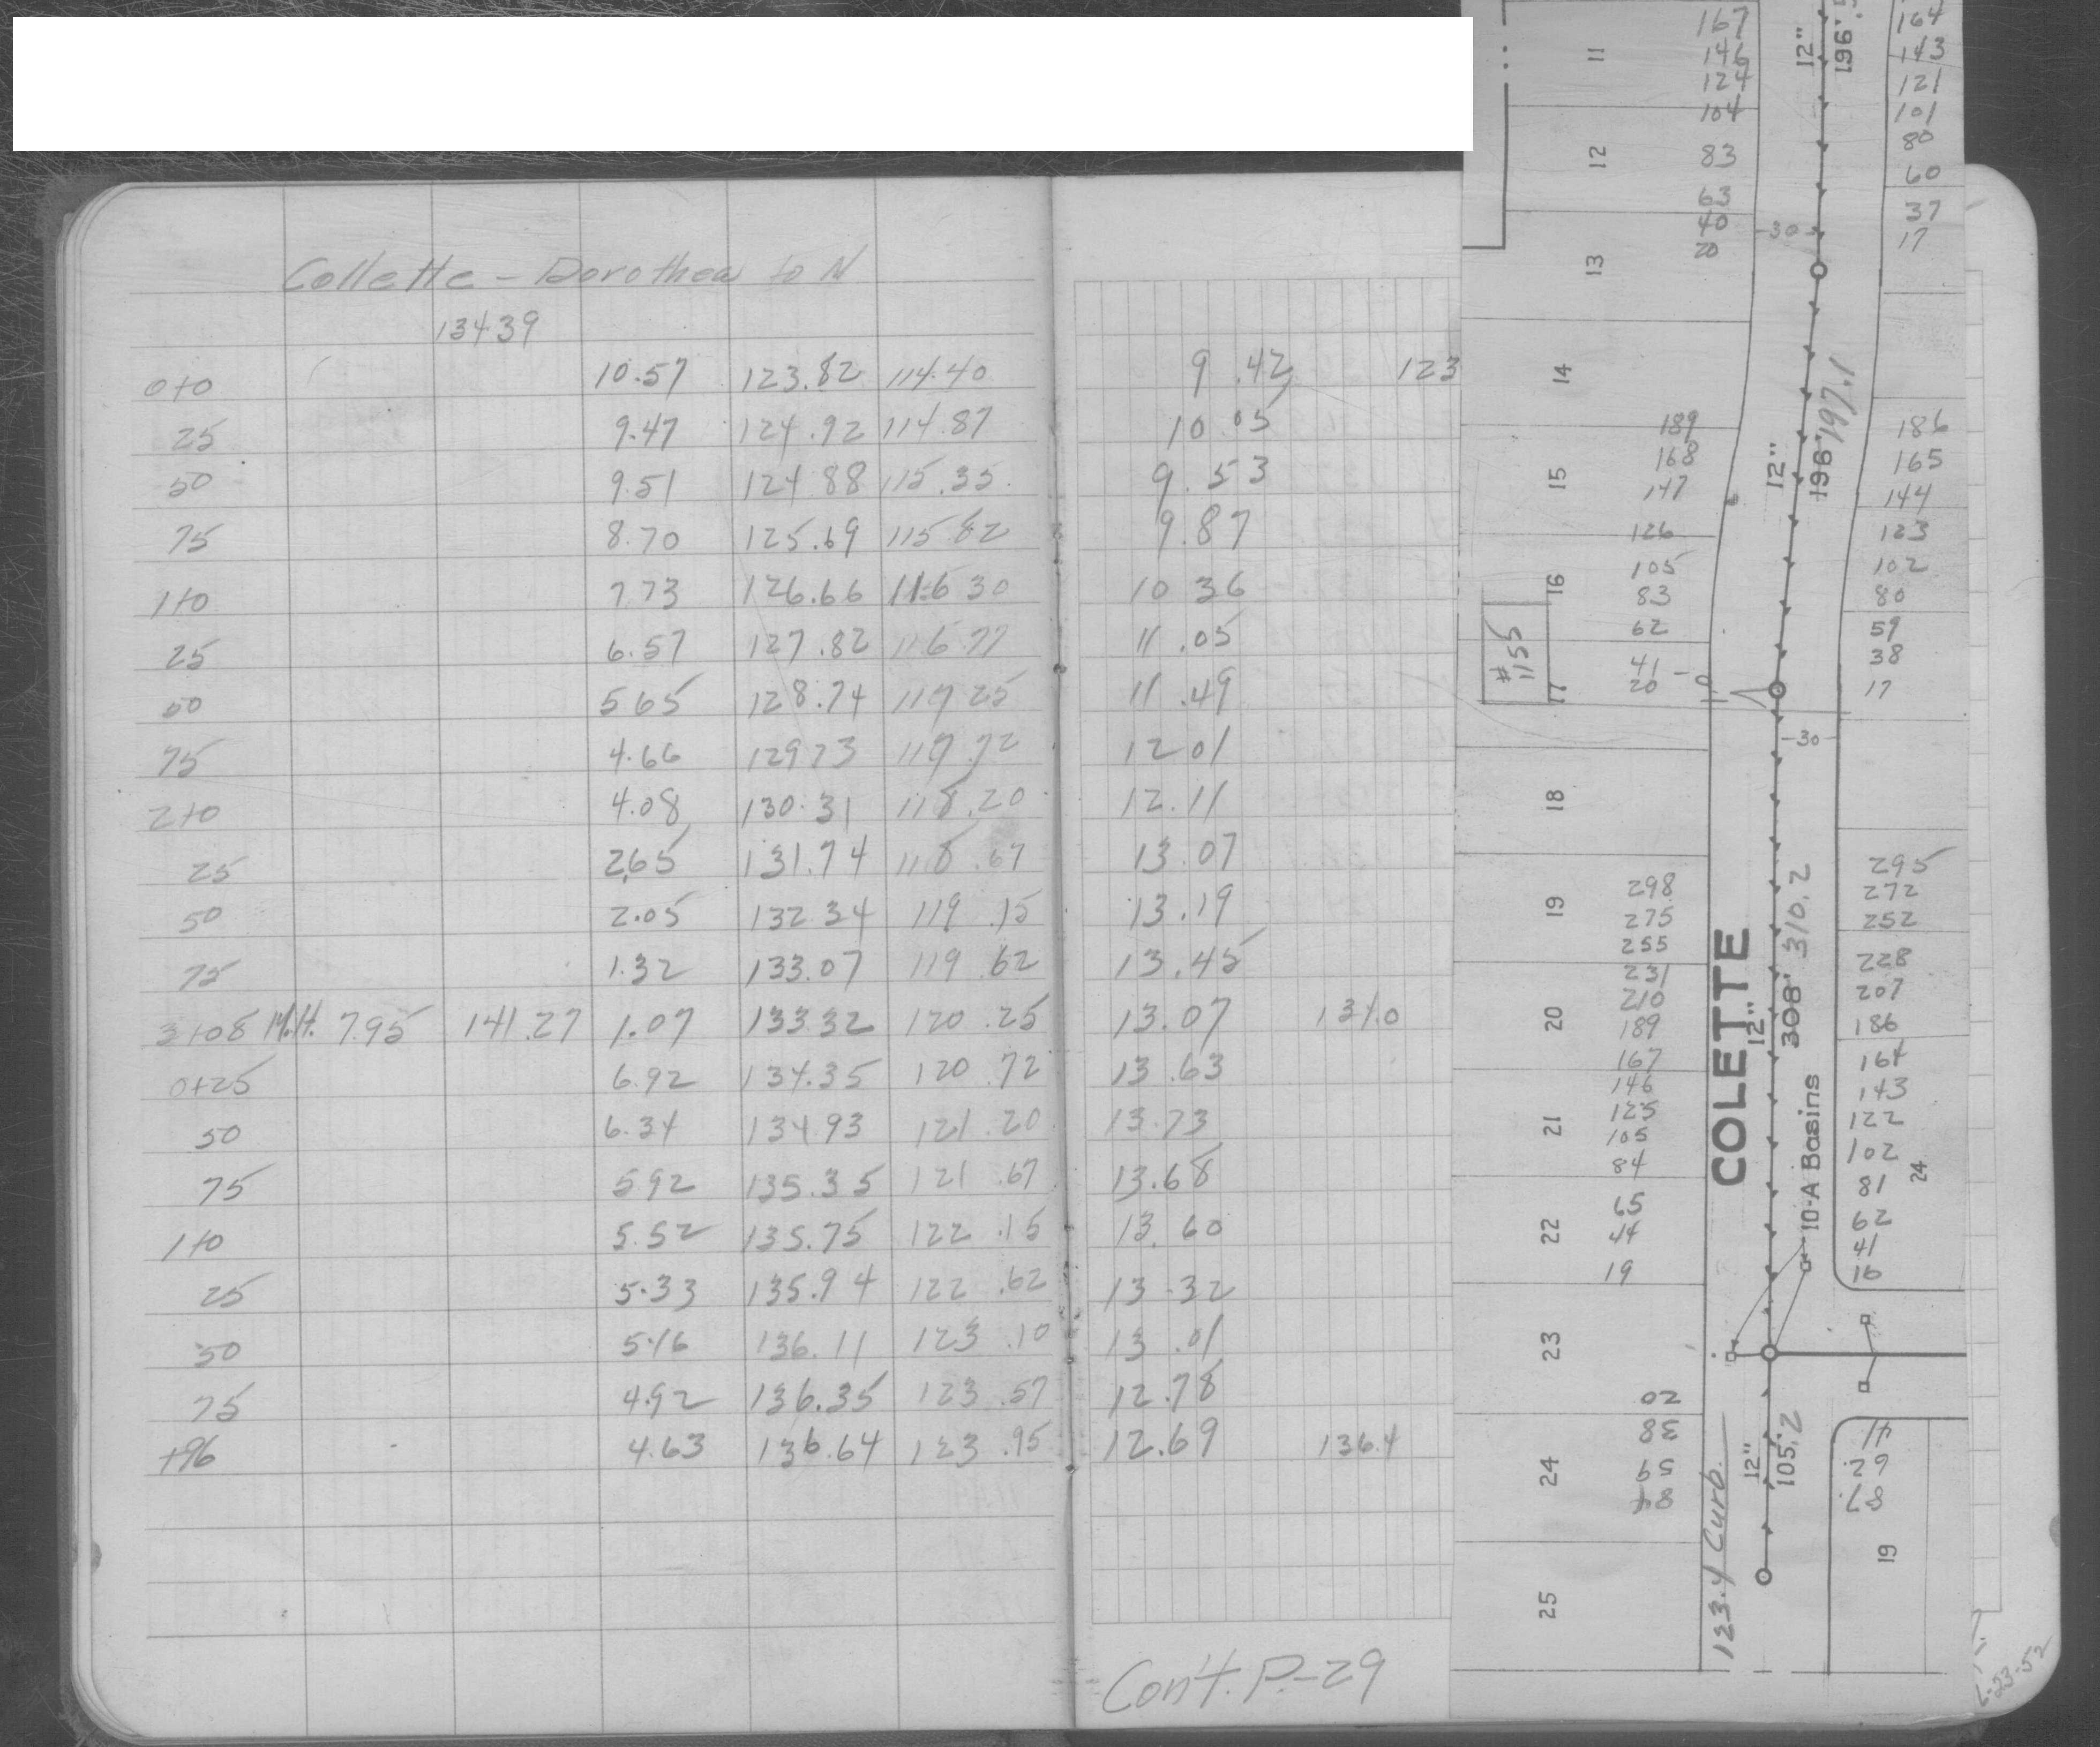 Collette - Dorothea to N
134.39
0+0 10.57 123.82 114.40 9.42 123
25 9.47 124.92 114.87 10.05
50 9.51 124.88 115.35 9.53
75 8.70 125.69 115.82 9.87
1+0 7.73 126.66 116.30 10.36
25 6.57 127.82 116.77 11.05
50 5.65 128.74 117.25 11.49
75 4.66 129.73 117.72 12.01
2+0 4.08 130.31 118.20 12.11
25 2.65 131.74 118.67 13.07
50 2.05 132.34 119.15 13.19
75 1.32 133.07 119.62 13.45
3+08 M.H. 7.95 141.27 1.07 133.32 120.25 13.07 131.0
0+25 6.92 134.35 120.72 13.63
50 6.34 134.93 121.20 13.73
75 5.92 135.35 121.67 13.68
1+0 5.52 135.75 122.15 13.60
25 5.33 135.94 122.62 13.32
50 5.16 136.11 123.10 13.01
75 4.92 136.35 123.57 12.78
+96 4.63 136.64 123.95 12.69 136.4
Con't. P.-29
11 167 12" 196'.5 164
146 143
124 121
104 101
12 83 80
63 60
40 -30- 37
13 20 17
14
189 12" 196' 197.1 186
15 168 165
147 144
126 123
16 105 102
83 80
#1155 62 59
41 38
17 20 17
-30-
18
298 295
19 275 272
255 252
231 228
20 210 207
189 186
167 164
146 143
21 125 122
105 102
84 81
24
22 65 62
44 41
19 16
COLETTE
12" 308' 310.2
10-A Basins
23
20
38 41
24 59 62
84 87
12" 105.2
123.4 Curb
25 19
L-23-52